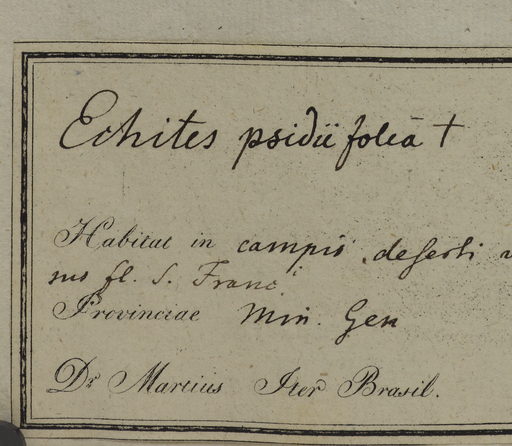 Echites psidiifolia †
Habitat in campis deserti v
sus fl. S. Franc.
Provinciae Min. Gen
Dr. Martius Iter Brasil.